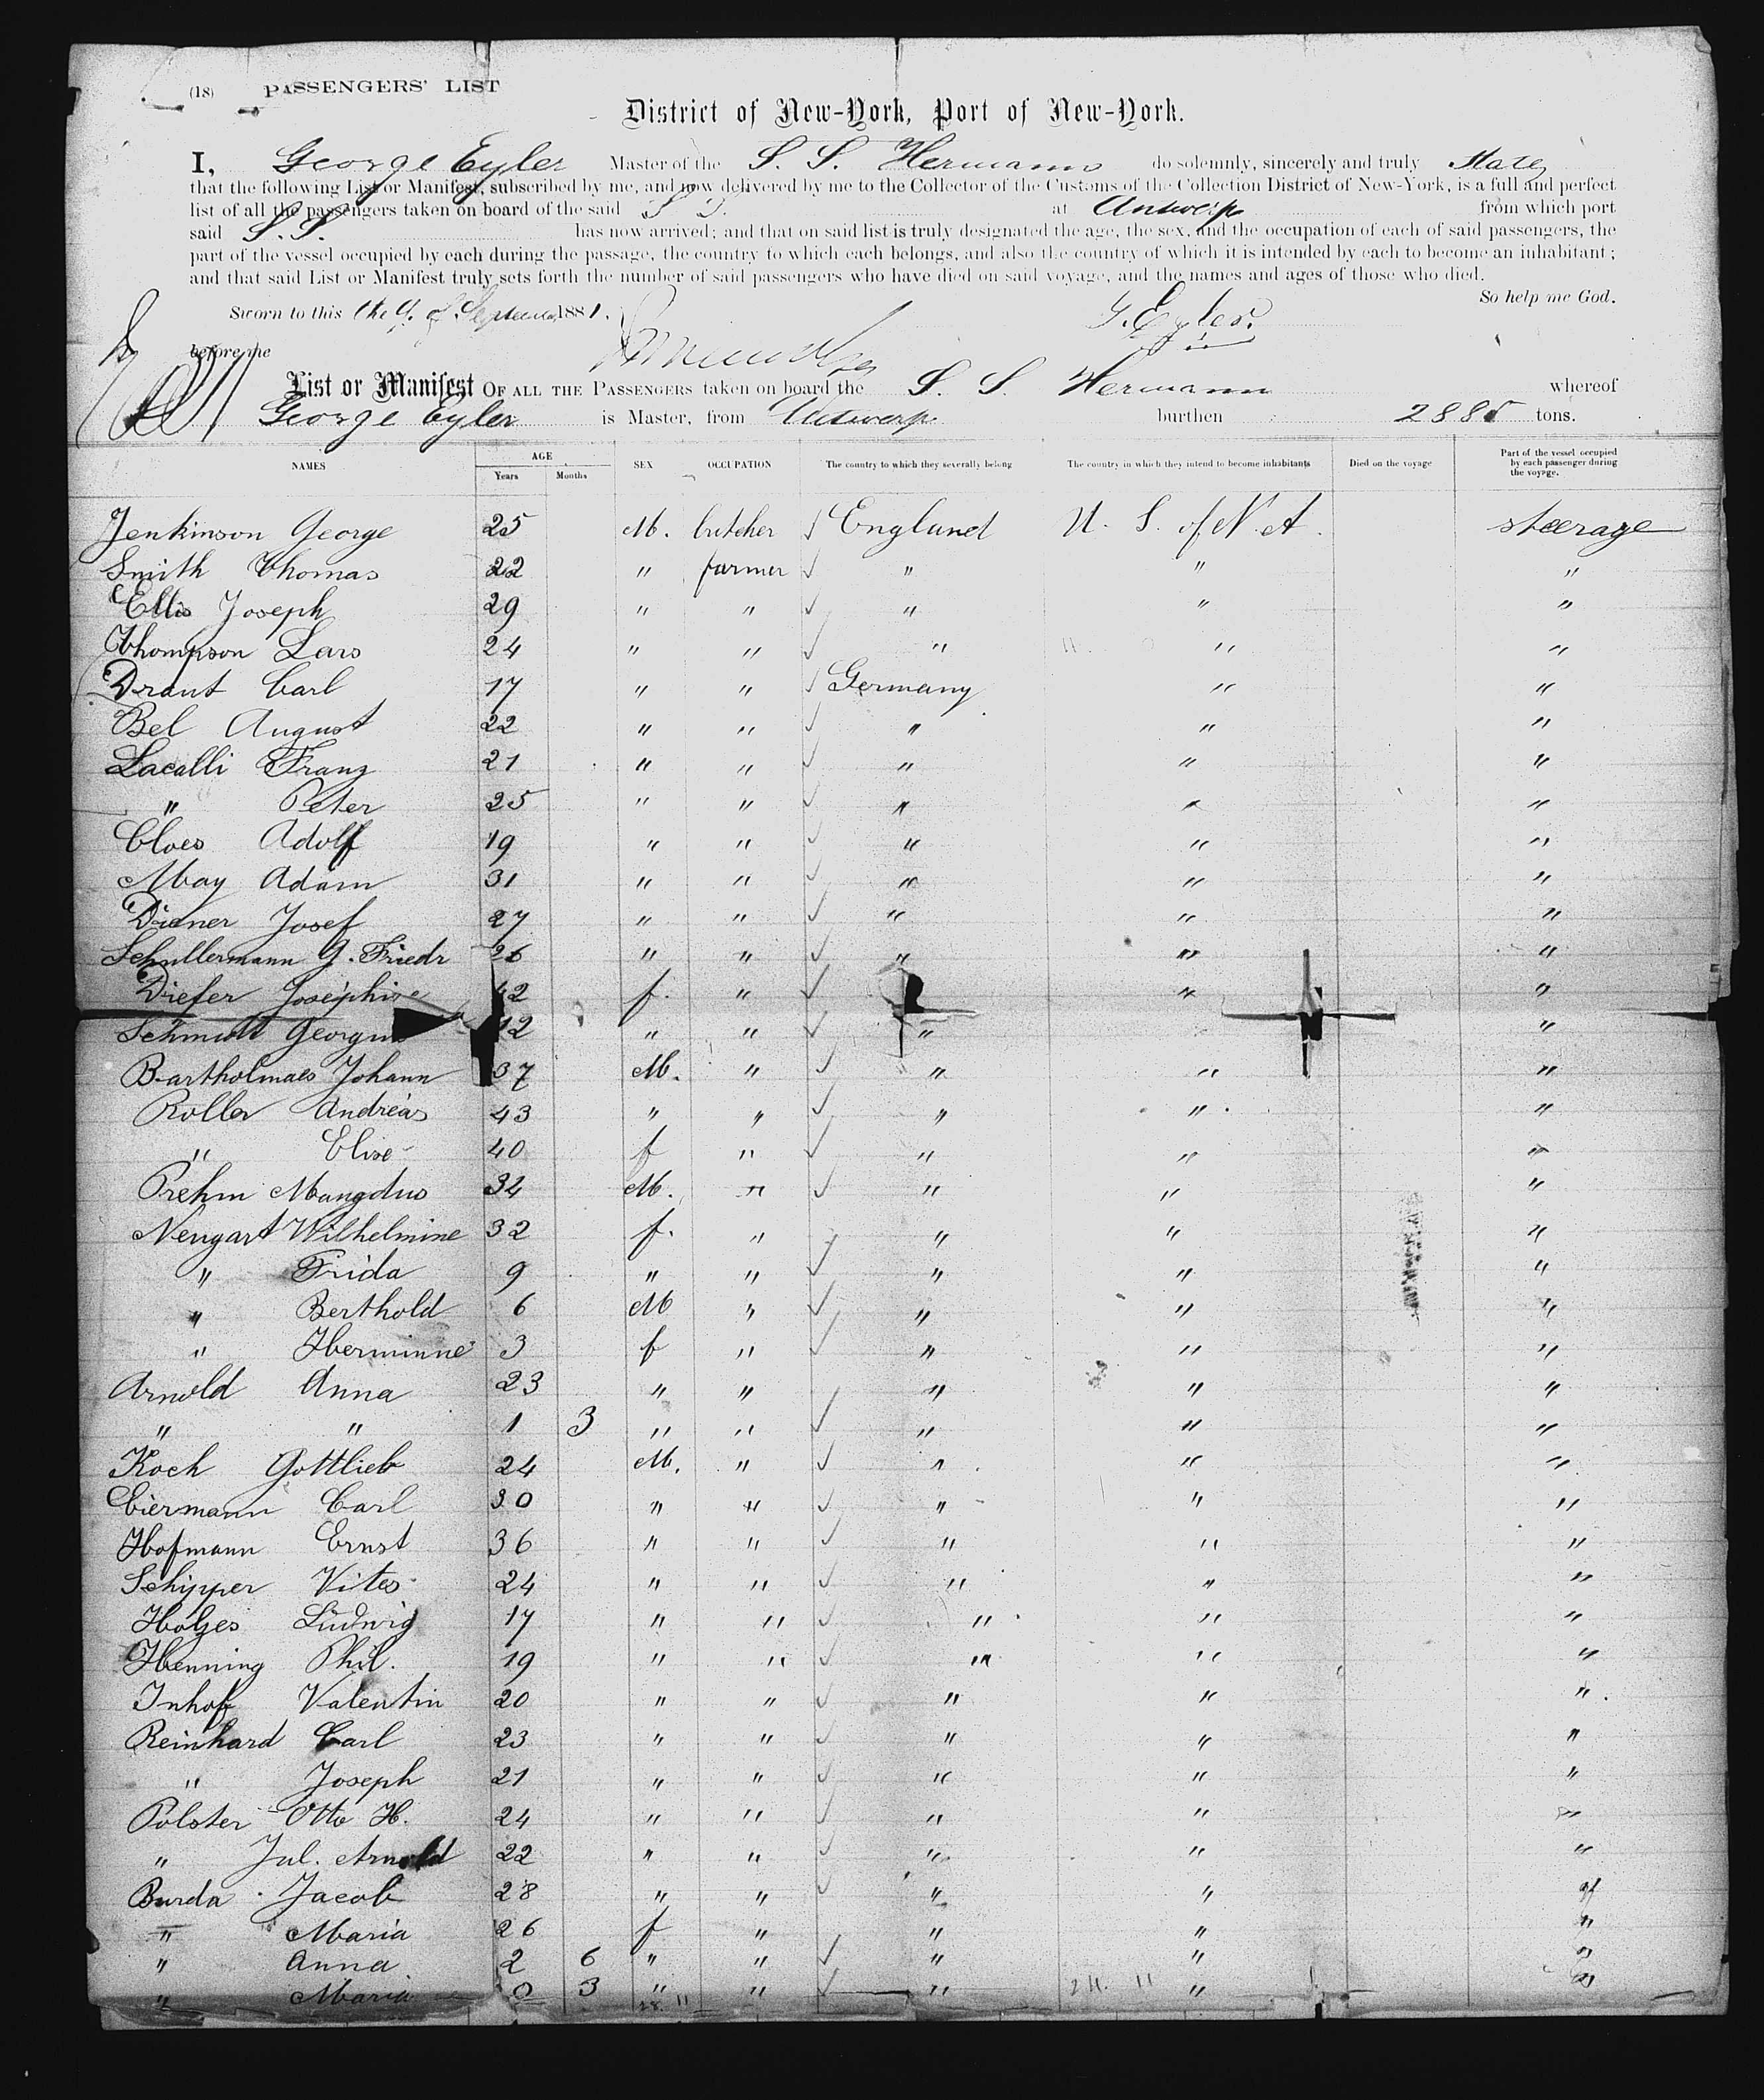 (18) PASSENGERS' LIST
District of New-York, Port of New-York.
I, George Eyler Master of the S. S. Hermann do solemnly, sincerely and truly state
that the following List or Manifest, subscribed by me, and now delivered by me to the Collector of the Customs of the Collection District of New-York, is a full and perfect
list of all the passengers taken on board of the said S S. at Antwerp from which port
said S. S. has now arrived; and that on said list is truly designated the age, the sex, and the occupation of each of said passengers, the
part of the vessel occupied by each during the passage, the country to which each belongs, and also the country of which it is intended by each to become an inhabitant;
and that said List or Manifest truly sets forth the number of said passengers who have died on said voyage, and the names and ages of those who died.
So help me God.
Sworn to this the 9. of 1881. G. Eyler.
before me
List or Manifest OF ALL THE PASSENGERS taken on board the S. S. Hermann whereof
George Eyler is Master, from Antwerp burthen 2885 tons.
NAMES AGE Years Months SEX OCCUPATION The country to which they severally belong The country in which they intend to become inhabitants Died on the voyage Part of the vessel occupied by each passenger during the voyage.
Jenkinson George 25 M. butcher England U. S. of N. A. steerage
Smith Thomas 22 " farmer " " "
Ellis Joseph 29 " " " " "
Thompson Lars 24 " " " " "
Draut Carl 17 " " Germany " "
Bel August 22 " " " " "
Lacalli Franz 21 " " " " "
" Peter 25 " " " " "
Cloes Adolf 19 " " " " "
May Adam 31 " " " " "
Diener Josef 27 " " " " "
Schullermann G. Friedr 26 " " " " "
Diefer Josephine 42 f. " " "
Schmidt 12 " " " "
Bartholmaes Johann 37 M. " " " "
Roller Andreas 43 " " " " "
" Elise 40 f " " " "
Prehm Mangdus 34 M. " " " "
Neugart Wilhelmine 32 f. " " " "
" Frida 9 " " " " "
" Berthold 6 M " " " "
" Herminne 3 f " " " "
Arnold Anna 23 " " " " "
" " 1 3 " " " " "
Koch Gottlieb 24 M. " " " "
Eiermann Carl 30 " " " " "
Hofmann Ernst 36 " " " " "
Schipper Vites 24 " " " " "
Holzes Ludwig 17 " " " " "
Henning Phil. 19 " " " " "
Inhof Valentin 20 " " " " "
Reinhard Carl 23 " " " " "
" Joseph 21 " " " " "
Polster Otto H. 24 " " " " "
" Jul. Arnold 22 " " " " "
Burda Jacob 28 " " " " "
" Maria 26 f " " " "
" Anna 2 6 " " " " "
" Maria 0 3 " " " " "